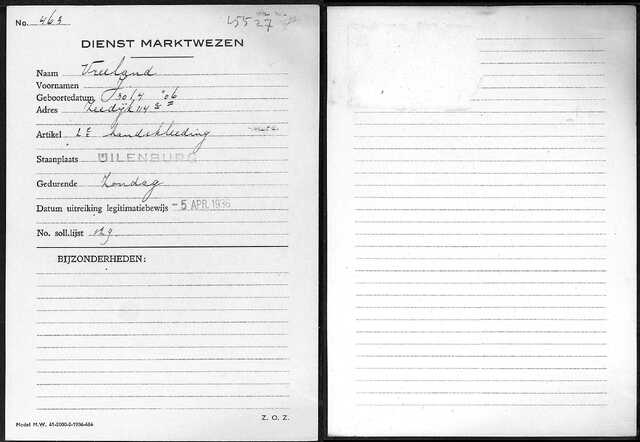 No. 463 45527
DIENST MARKTWEZEN
Naam Vreeland
Voornamen J
Geboortedatum 30/4 '06
Adres Zeedijk 114
Artikel handekleeding
Staanplaats UILENBURG
Gedurende Zondag
Datum uitreiking legitimatiebewijs - 5 APR. 1936
No. soll.lijst
BIJZONDERHEDEN:
Z. O. Z.
Model M.W. 41-2000-2-1936-486